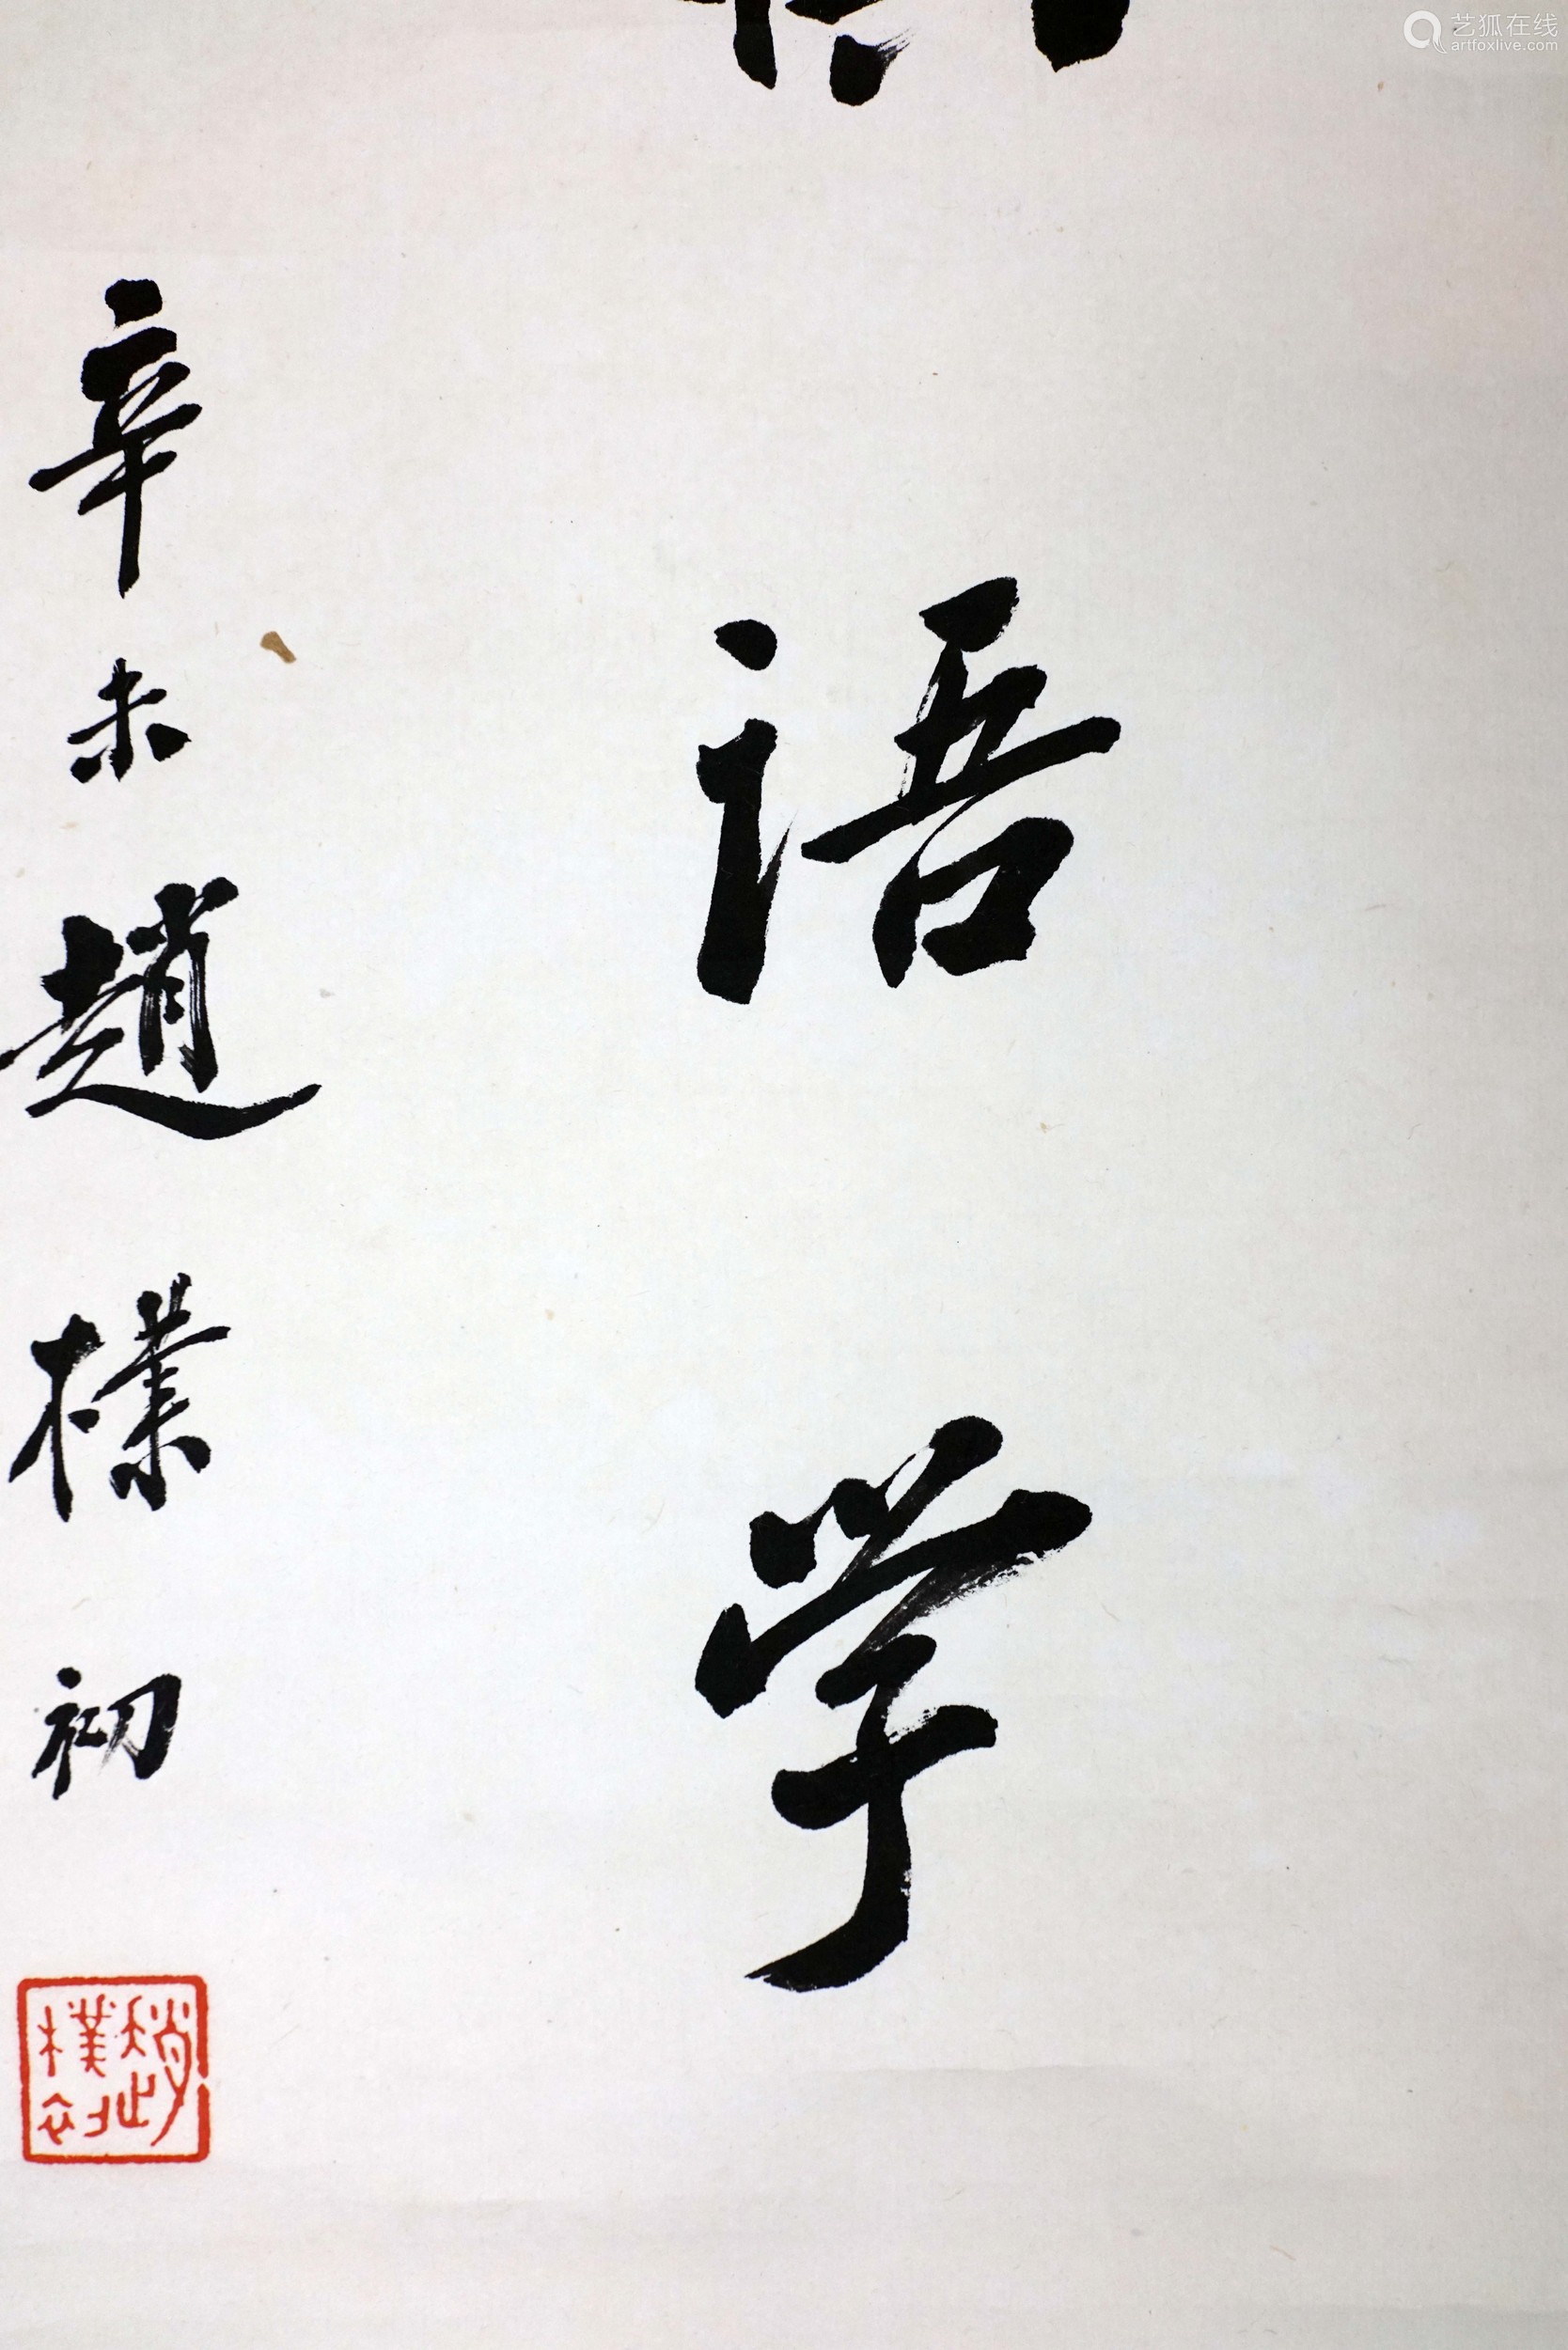 艺狐在线
artfoxlive.com
语学
辛未趙樸初
趙樸初